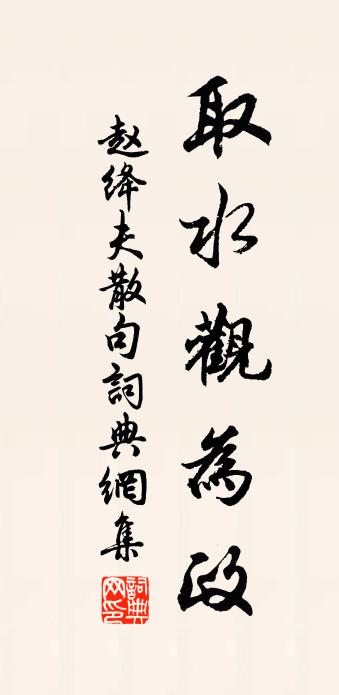 取水觀為政
赵绛夫散句詞典網集
詞典网印